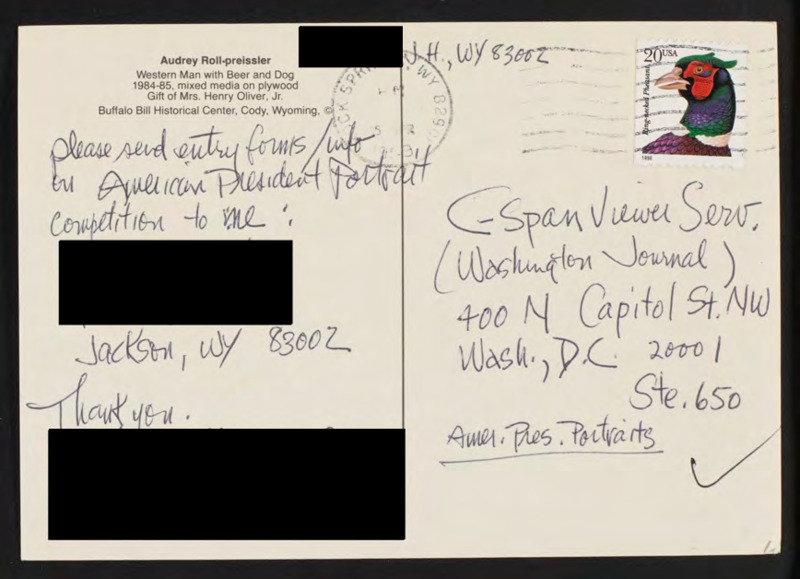 Audrey Roll-preissler
Western Man with Beer and Dog
1984-85, mixed media on plywood
Gift of Mrs. Henry Oliver, Jr.
Buffalo Bill Historical Center, Cody, Wyoming, ©
J.H., WY 83002
WY 829
20USA
Ring-necked Pheasant
1998
please send entry forms/info
on American President Portrait
competition to me:
Jackson, WY 83002
Thank you.
C-Span Viewer Serv.
(Washington Journal)
400 N Capitol St. NW
Wash., D.C. 20001
Ste. 650
Amer. Pres. Portraits